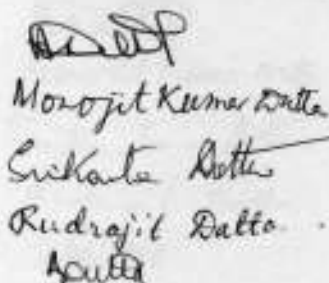 Monojit Kumar Datta
Srikanta Datta
Rudrajit Datta